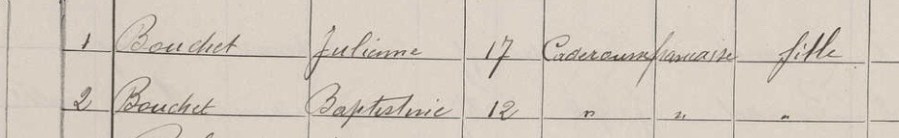 1 Bouchet Julienne 17 Caderousse française fille
2 Bouchet Baptistine 12 " " "